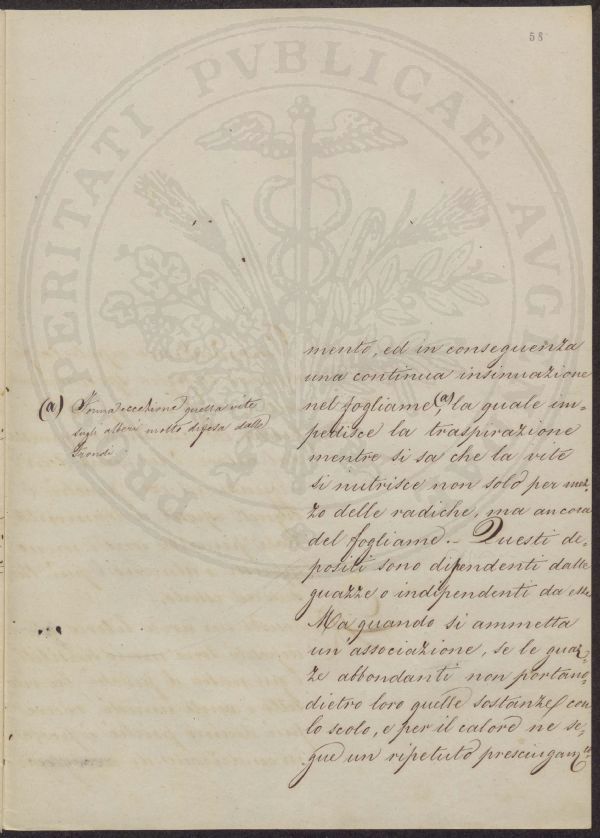 58
PROSPERITATI PVBLICAE AVGENDAE
mento, ed in conseguenza
una continua insinuazione
nel fogliame (a), la quale im-
pedisce la traspirazione
mentre si sa che la vite
si nutrisce non solo per mez-
zo delle radiche, ma ancora
del fogliame. – Questi de-
positi sono dipendenti dalle
guazze o indipendenti da esse
Ma quando si ammetta
un'associazione, se le guaz-
ze abbondanti non portano
dietro loro quelle sostanze con
lo scolo, e per il calore ne se-
gue un ripetuto prosciugam.to
(a) Fanno eccezione quella vite
sugli alberi molto difesa dalle
Frondi